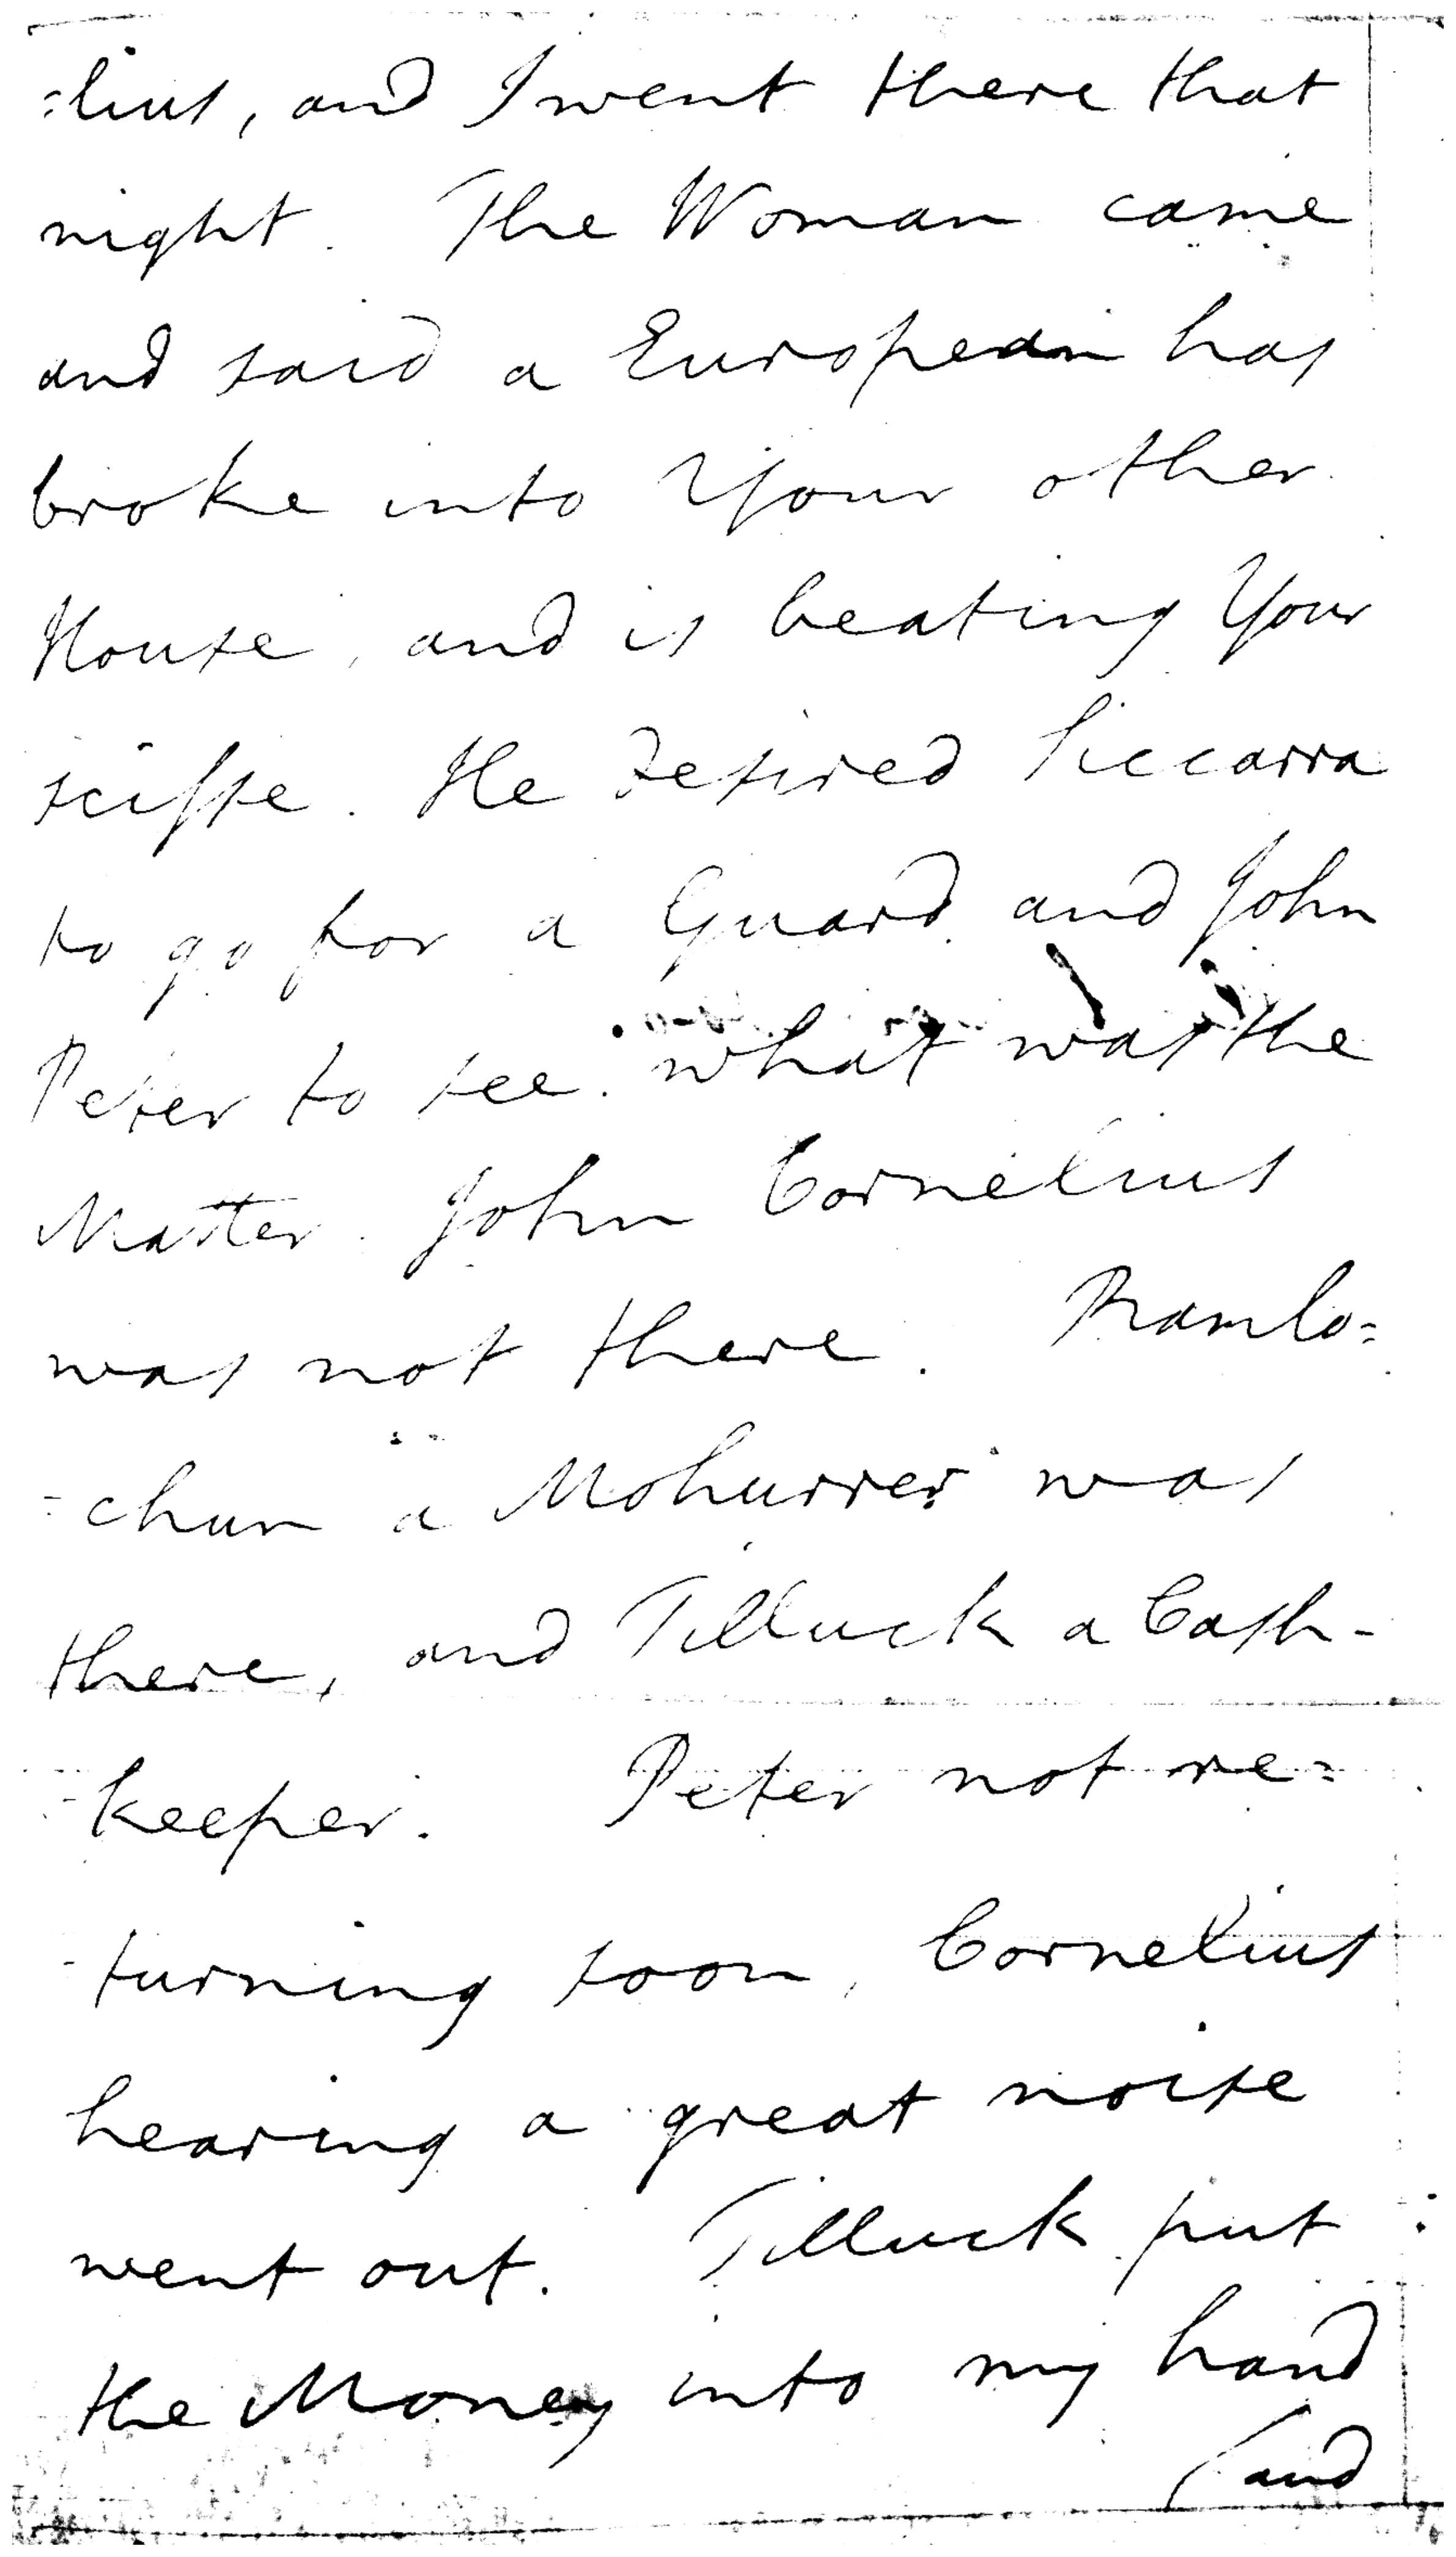 =lius, and I went there that
night. The Woman came
and said a European has
broke into Your other
House, and is beating Your
seisse. He desired Siccarra
to go for a Guard and John
Peter to see what was the
Matter. John Cornelius
was not there. Ramlo=
=chun a Mohurrer was
there, and Tilluck a Cash-
-keeper. Peter not re=
-turning soon, Cornelius
hearing a great noise
went out. Tilluck put
the Money into my hand
(and